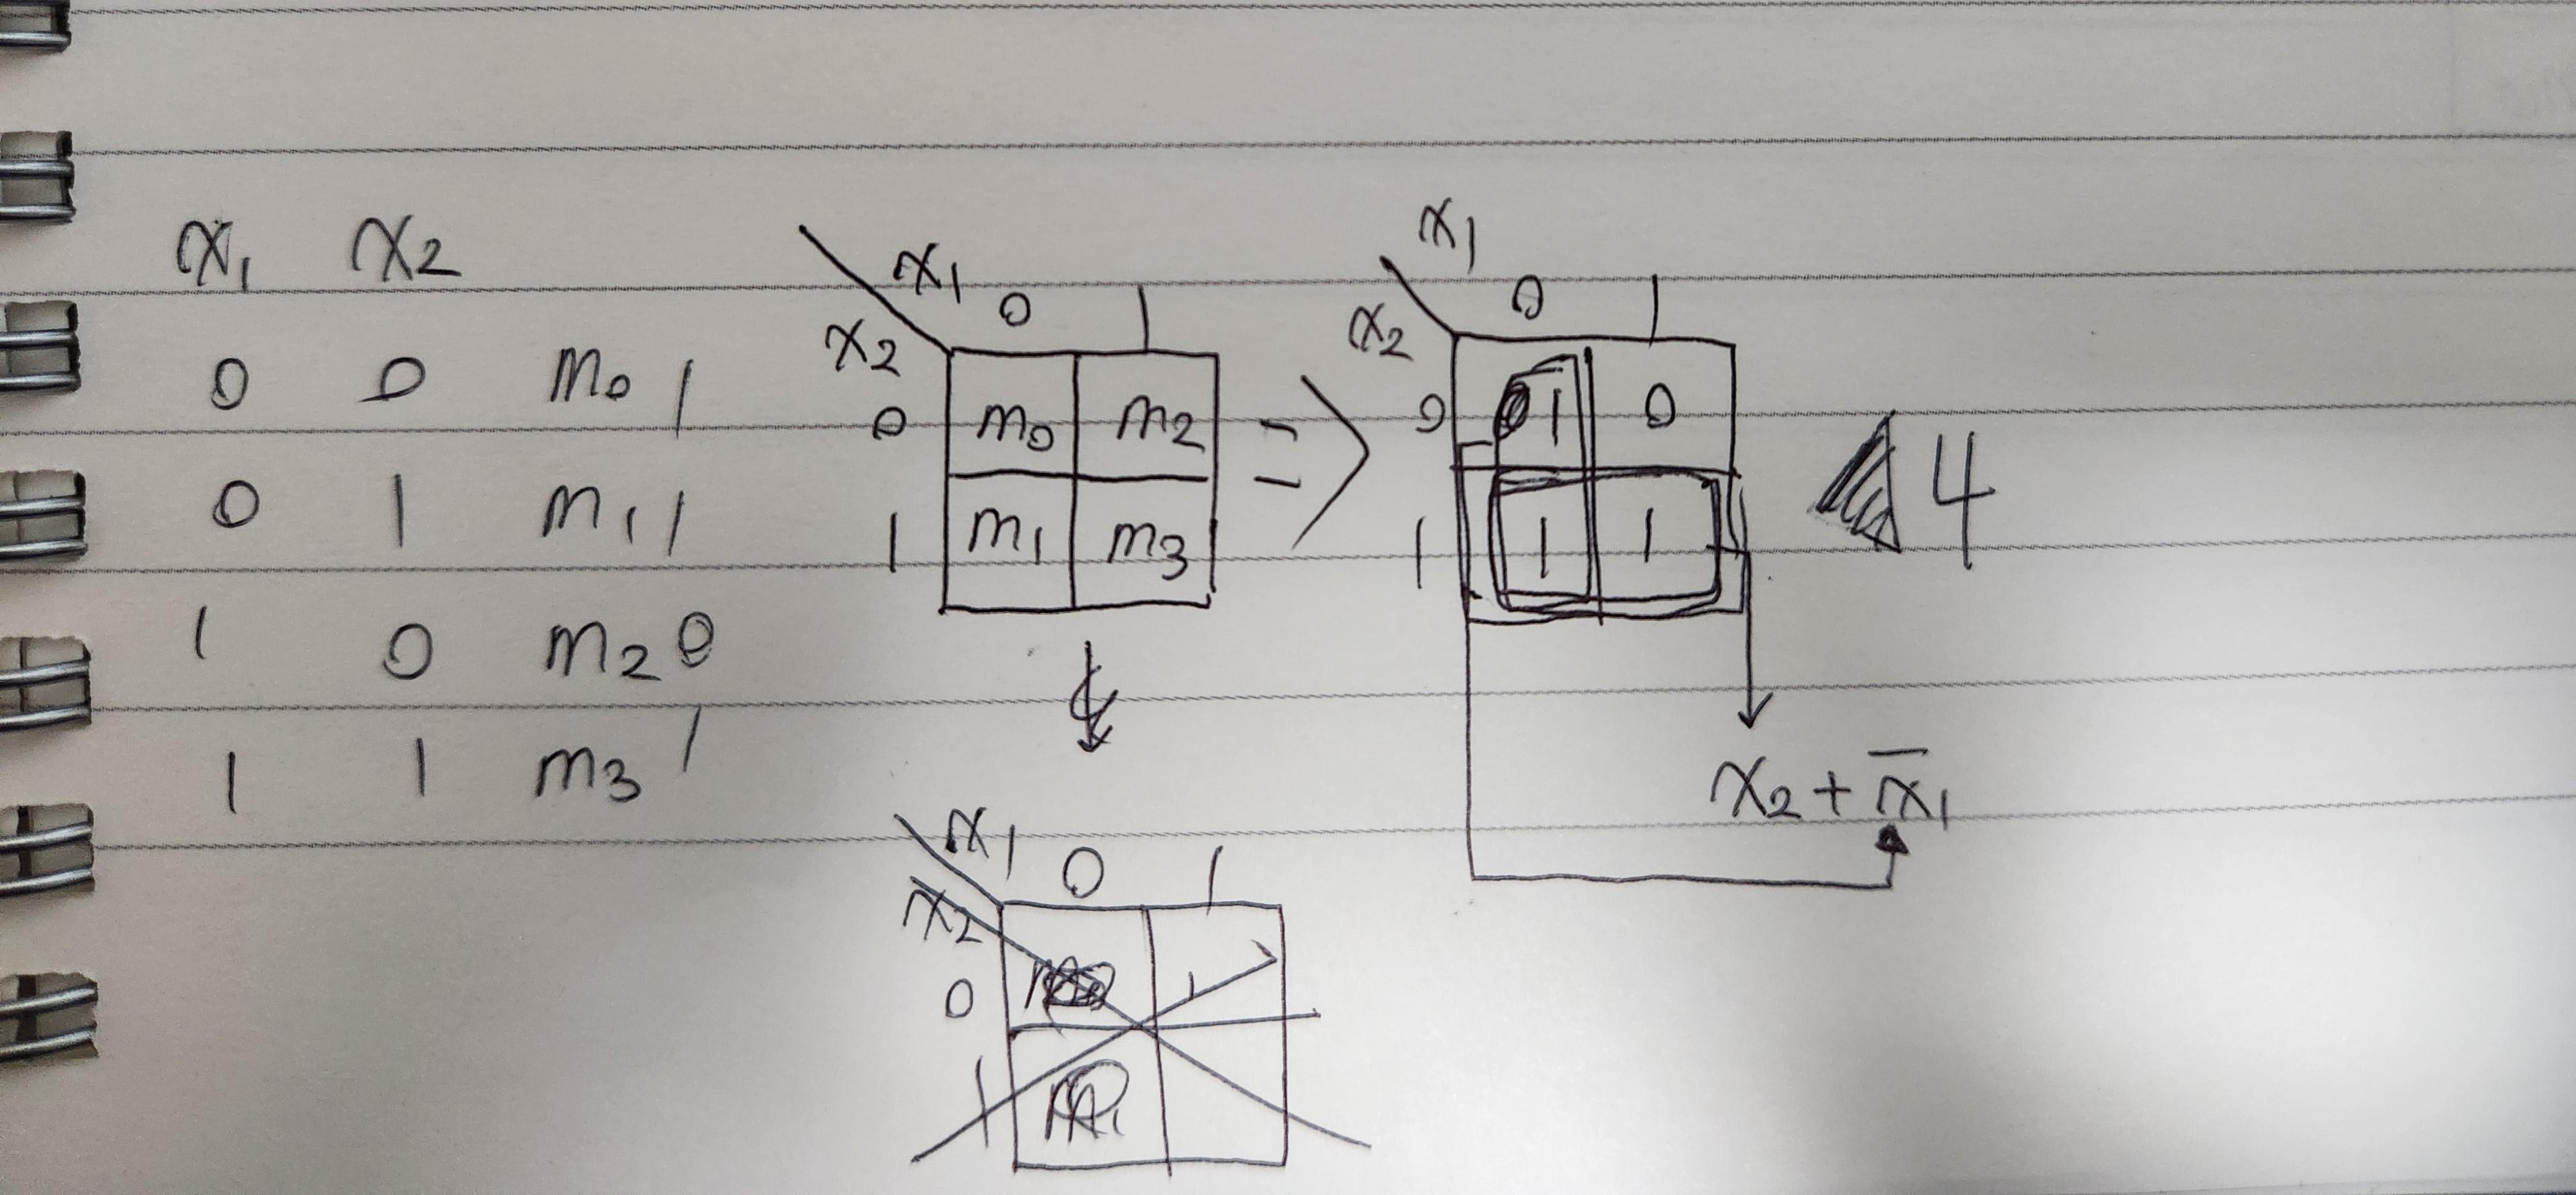 x₁ x₂
0 0 m₀ 1
0 1 m₁ 1
1 0 m₂ 0
1 1 m₃ 1
x₁ 0 1
x₂
0 m₀ m₂
1 m₁ m₃
=>
x₁ 0 1
x₂
0 1 0
1 1 1
4
x₂ + x̅₁
x₁ 0 1
x₂
0
1